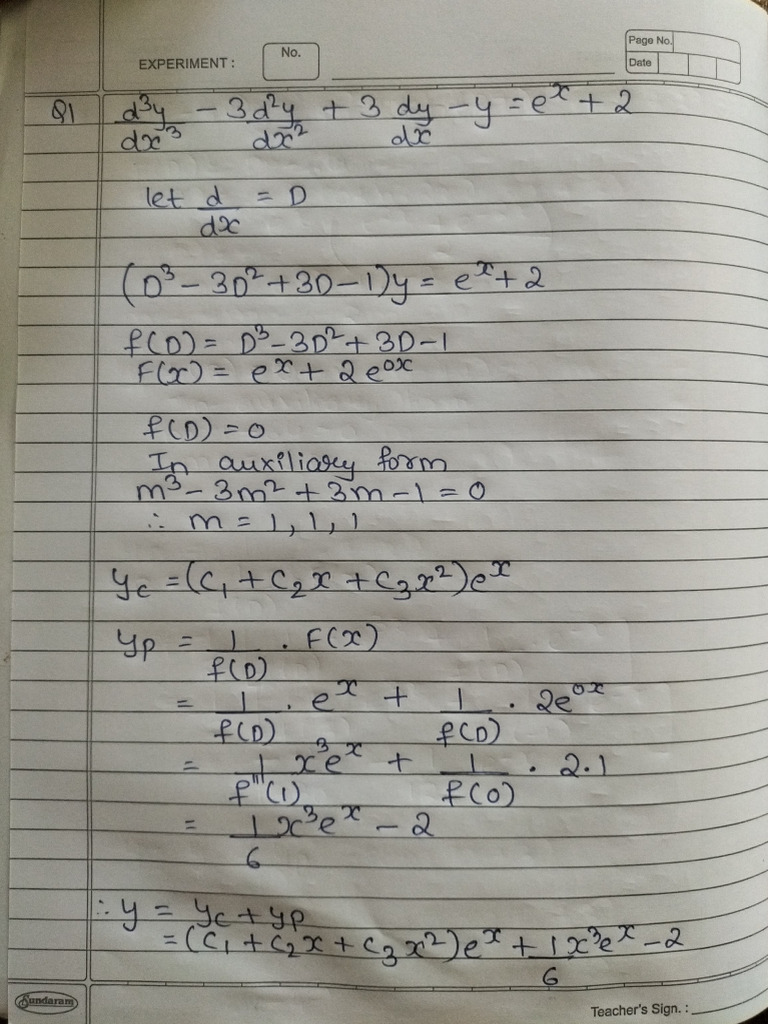 EXPERIMENT :
No.
Page No.
Date
Q1 d³y/dx³ - 3 d²y/dx² + 3 dy/dx - y = eˣ + 2
let d/dx = D
(D³ - 3D² + 3D - 1)y = eˣ + 2
f(D) = D³ - 3D² + 3D - 1
F(x) = eˣ + 2e⁰ˣ
f(D) = 0
In auxiliary form
m³ - 3m² + 3m - 1 = 0
∴ m = 1, 1, 1
y_c = (c₁ + c₂x + c₃x²)eˣ
y_p = 1/f(D) . F(x)
= 1/f(D) . eˣ + 1/f(D) . 2e⁰ˣ
= 1/f'''(1) x³eˣ + 1/f(0) . 2.1
= 1/6 x³eˣ - 2
∴ y = y_c + y_p
= (c₁ + c₂x + c₃x²)eˣ + 1/6 x³eˣ - 2
Sundaram
Teacher's Sign. :